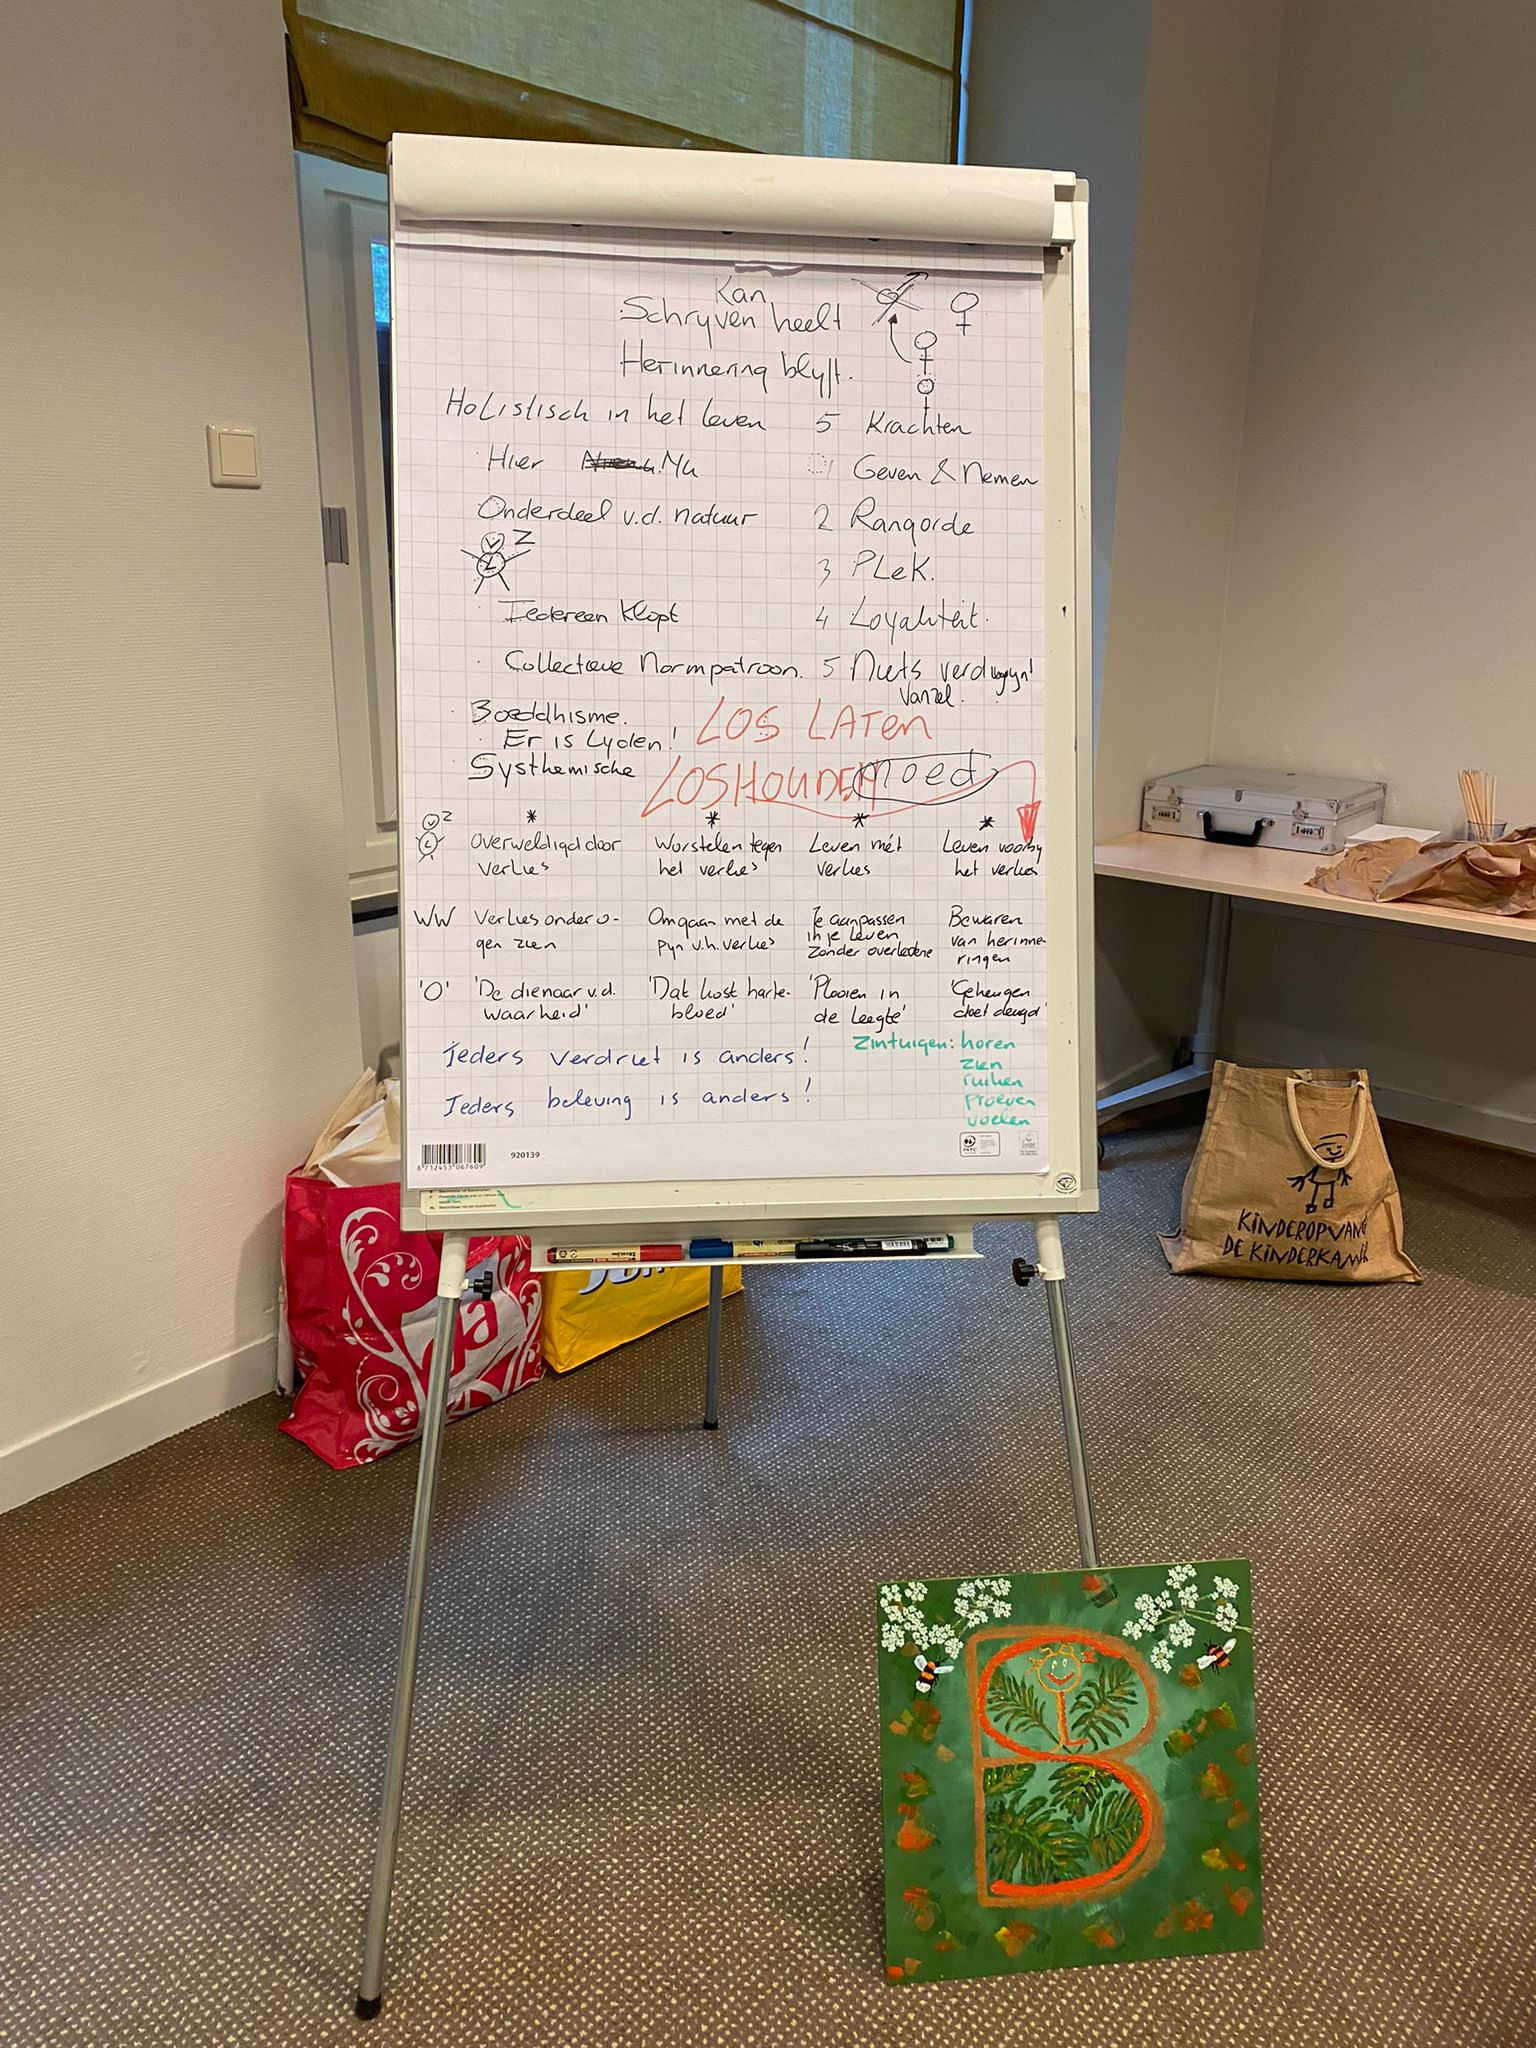 Kan
Schryven heelt
Herinnering blyft.
Holistisch in het leven
Hier Nu
Onderdeel v.d. natuur
V Z
L
Iedereen klopt
Collectieve Normpatroon.
5 Krachten
1 Geven & Nemen
2 Rangorde
3 PLeK.
4 Loyaliteit.
5 Niets verdwynt
vanzel.
Boeddhisme.
Er is Lyden!
Systhemische
LOS LATEN
LOSHOUDEN moed
V Z
L
* * * *
Overweldigd door
verlies
Worstelen tegen
het verlies
Leven mét
verlies
Leven voorby
het verlies
WW
Verlies onder o-
gen zien
Omgaan met de
pyn v.h. verlies
Je aanpassen
in je leven
zonder overledene
Bewaren
van herinne-
ringen
'O'
'De dienaar v.d.
waarheid'
'Dat kost harte-
bloed'
'Plooien in
de leegte'
'Geheugen
doet deugd'
Zintuigen: horen
zien
ruiken
proeven
voelen
Ieders verdriet is anders!
Ieders beleving is anders!
8 712453 067609
920139
PEFC
KINDEROPVANG
DE KINDERKAMER
B